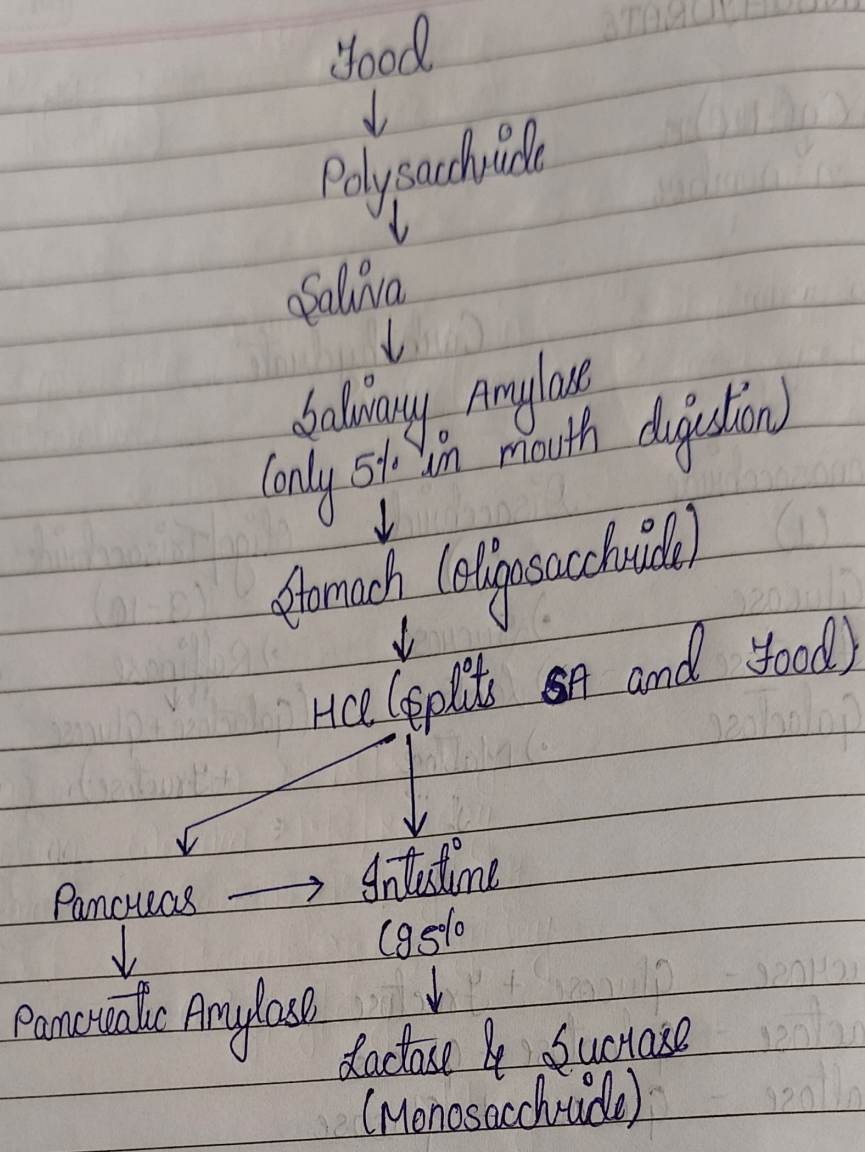 Food
↓
Polysacchride
↓
Saliva
↓
Salivary Amylase
(only 5% in mouth digestion)
↓
Stomach (oligosacchride)
↓
HCl (splits SA and Food)
Pancreas → Intestine
(95%
↓ ↓
Pancreatic Amylase
Lactase & Sucrase
(Monosacchride)